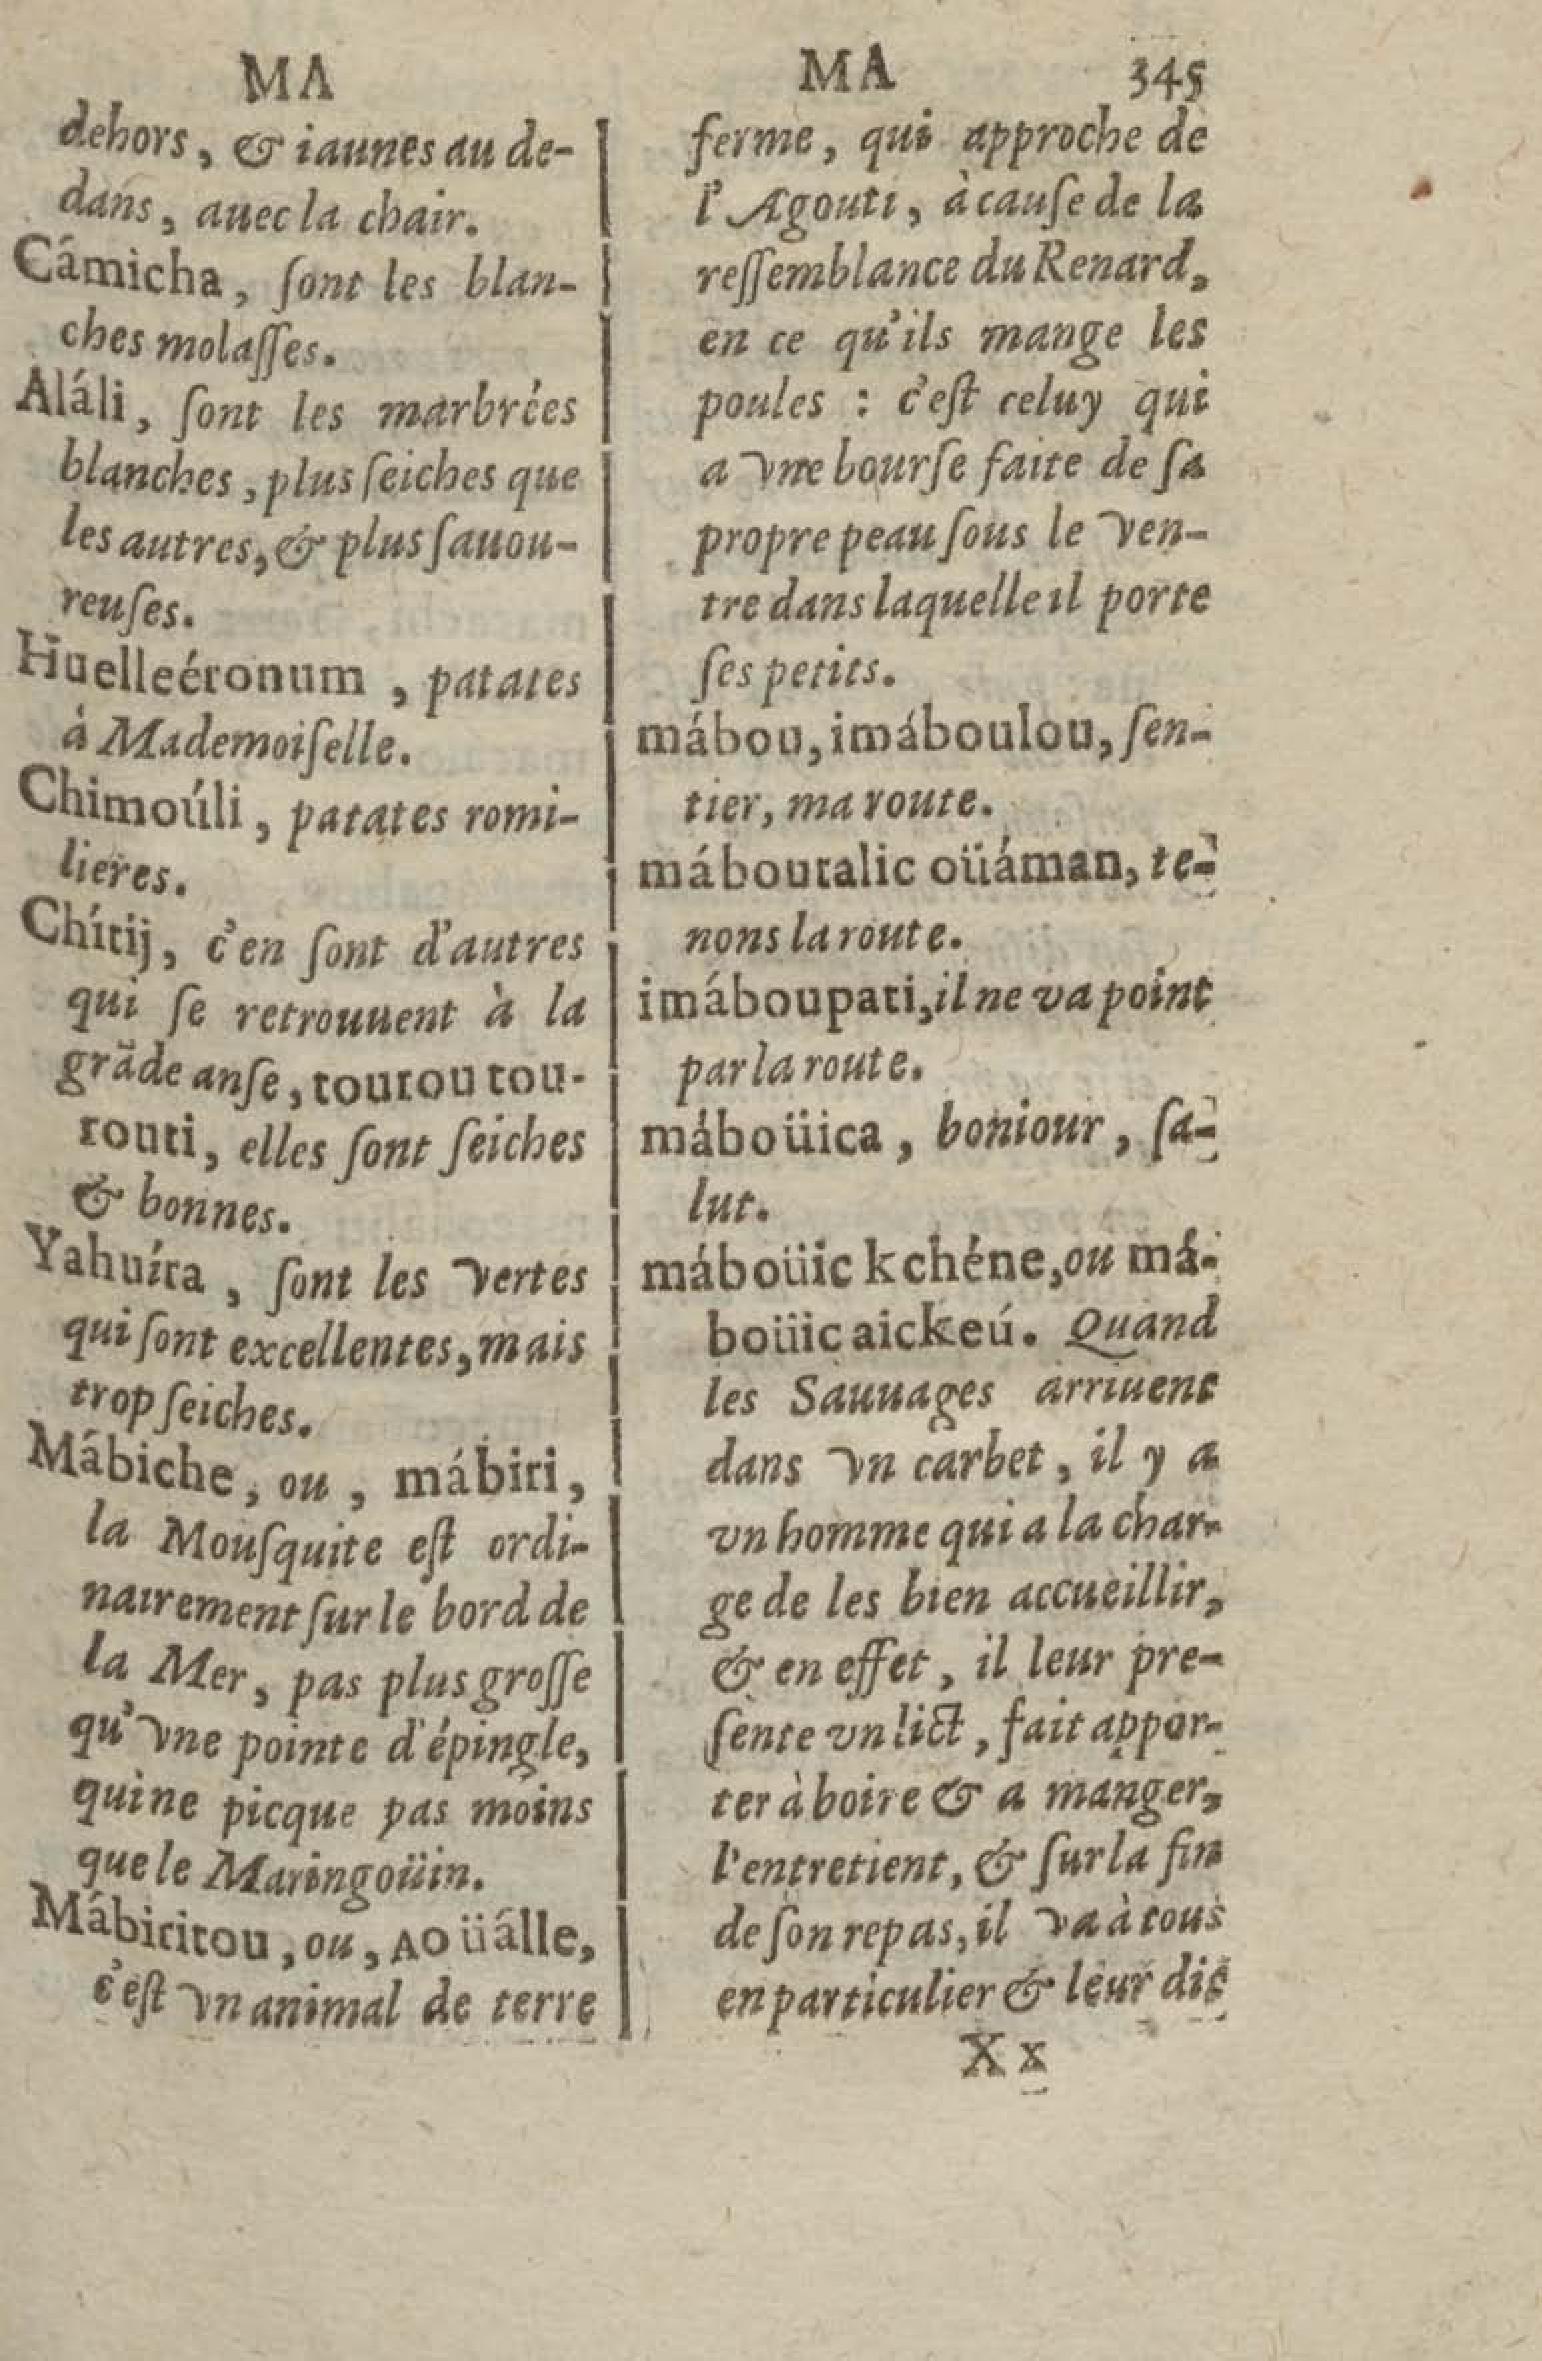 MA
dehors, & iaunes au de-
dans, auec la chair.
Cámicha, ſont les blan-
ches molaſſes.
Aláli, ſont les marbrées
blanches, plus ſeiches que
les autres, & plus ſauou-
reuſes.
Huelleéronum, patates
à Mademoiſelle.
Chimoúli, patates romi-
lieres.
Chítij, c'en ſont d'autres
qui ſe retrouuent à la
grãde anſe, tourou tou-
routi, elles ſont ſeiches
& bonnes.
Yahuíra, ſont les vertes
qui ſont excellentes, mais
trop ſeiches.
Mábiche, ou, mábiri,
la Mouſquite eſt ordi-
nairement ſur le bord de
la Mer, pas plus groſſe
qu'vne pointe d'épingle,
qui ne picque pas moins
que le Maringoüin.
Mábiritou, ou, Aoüálle,
c'eſt vn animal de terre
MA 345
ferme, qui approche de
l'Agouti, à cauſe de la
reſſemblance du Renard,
en ce qu'ils mange les
poules : c'eſt celuy qui
a vne bourſe faite de ſa
propre peau ſous le ven-
tre dans laquelle il porte
ſes petits.
mábou, imáboulou, ſen-
tier, ma route.
máboutalic oüáman, te-
nons la route.
imáboupati, il ne va point
par la route.
máboüica, boniour, ſa-
lut.
máboüic kchéne, ou má-
boüic aickeú. Quand
les Sauuages arriuent
dans vn carbet, il y a
vn homme qui a la char-
ge de les bien accueillir,
& en effet, il leur pre-
ſente vn lict, fait appor-
ter à boire & a manger,
l'entretient, & ſur la fin
de ſon repas, il va à tous
en particulier & leur dit
Xx